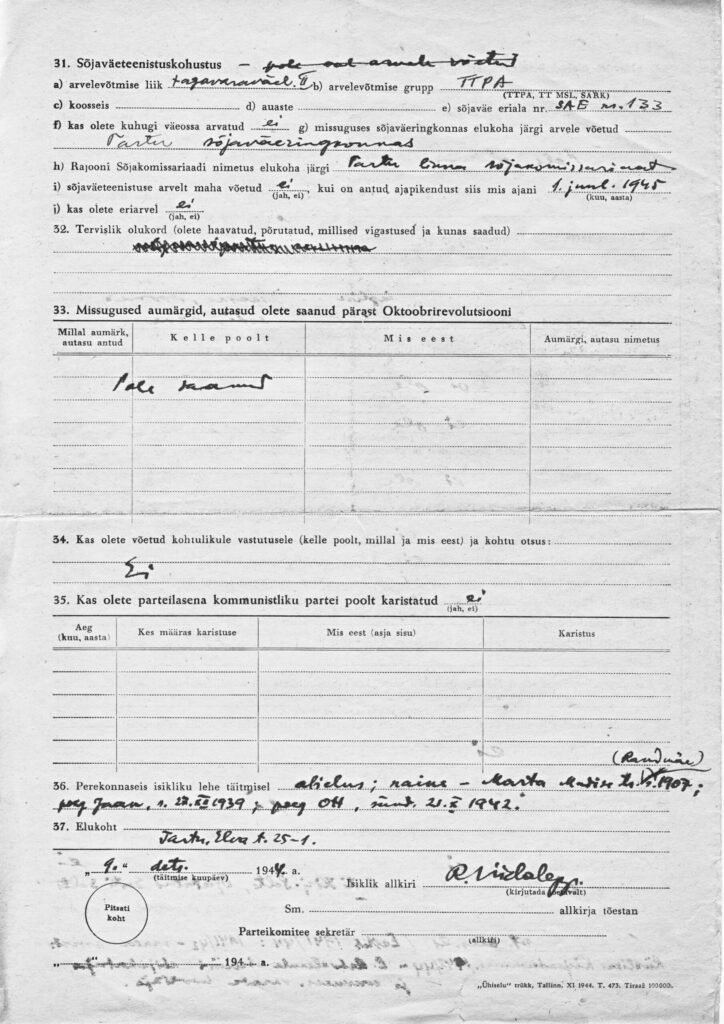 31. Sõjaväeteenistuskohustus – pole oal arvele võetud
a) arvelevõtmise liik tagavaraväel. II b) arvelevõtmise grupp TTPA
(TTPA, TT MSL, SARK)
c) koosseis d) auaste e) sõjaväe eriala nr. SAE nr. 133
f) kas olete kuhugi väeossa arvatud ei g) missuguses sõjaväeringkonnas elukoha järgi arvele võetud
Tartu sõjaväeringkonnas
h) Rajooni Sõjakomissariaadi nimetus elukoha järgi Tartu linna sõjakomissariaat
i) sõjaväeteenistuse arvelt maha võetud ei, kui on antud ajapikendust siis mis ajani 1. juul. 1945
(jah, ei) (kuu, aasta)
j) kas olete eriarvel ei
(jah, ei)
32. Tervislik olukord (olete haavatud, põrutatud, millised vigastused ja kunas saadud)
33. Missugused aumärgid, autasud olete saanud pärast Oktoobrirevolutsiooni
Millal aumärk, autasu antud Kelle poolt Mis eest Aumärgi, autasu nimetus
Pole saanud
34. Kas olete võetud kohtulikule vastutusele (kelle poolt, millal ja mis eest) ja kohtu otsus:
Ei
35. Kas olete parteilasena kommunistliku partei poolt karistatud ei
(jah, ei)
Aeg (kuu, aasta) Kes määras karistuse Mis eest (asja sisu) Karistus
(Randmäe)
36. Perekonnaseis isikliku lehe täitmisel abielus; naine – Marta Madise tr. s. 1907;
poeg Jaan, s. 27. XII 1939; poeg Ott, sünd. 21. X 1942.
37. Elukoht Tartu, Elva t. 25-1.
„ 9. “ dets. 1944. a.
(täitmise kuupäev) Isiklik allkiri R. Viidalepp.
(kirjutada loetavalt)
Pitsati koht
Sm. allkirja tõestan
Parteikomitee sekretär
(allkiri)
„ “ 194 a.
„Ühiselu“ trükk, Tallinn. XI 1944. T. 473. Tiraaž 100000.